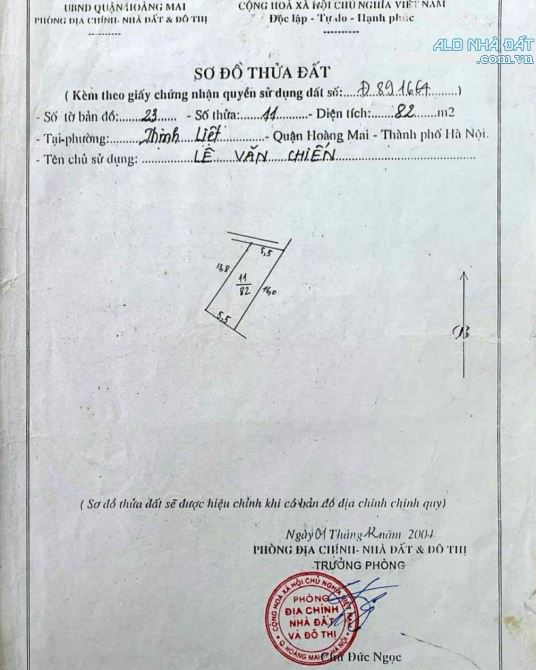 UBND QUẬN HOÀNG MAI
PHÒNG ĐỊA CHÍNH- NHÀ ĐẤT & ĐÔ THỊ
CỘNG HOÀ XÃ HỘI CHỦ NGHĨA VIỆT NAM
Độc lập - Tự do - Hạnh phúc
ALO NHÀ ĐẤT
.com.vn
SƠ ĐỒ THỬA ĐẤT
( Kèm theo giấy chứng nhận quyền sử dụng đất số: Đ 891664 )
- Số tờ bản đồ: 23 - Số thửa: 11 - Diện tích: 82 m2
- Tại-phường: Thịnh Liệt - Quận Hoàng Mai - Thành phố Hà Nội.
- Tên chủ sử dụng: LÊ VĂN CHIẾN
5,5
13,8
11
82
16,0
5,5
B
( Sơ đồ thửa đất sẽ được hiệu chỉnh khi có bản đồ địa chính chính quy)
Ngày 01 Tháng 12 năm 2004
PHÒNG ĐỊA CHÍNH- NHÀ ĐẤT & ĐÔ THỊ
TRƯỞNG PHÒNG
CỘNG HOÀ XÃ HỘI CHỦ NGHĨA VIỆT NAM
PHÒNG
ĐỊA CHÍNH
NHÀ ĐẤT
VÀ ĐÔ THỊ
Q. HOÀNG MAI TP HÀ NỘI
Chu Đức Ngọc